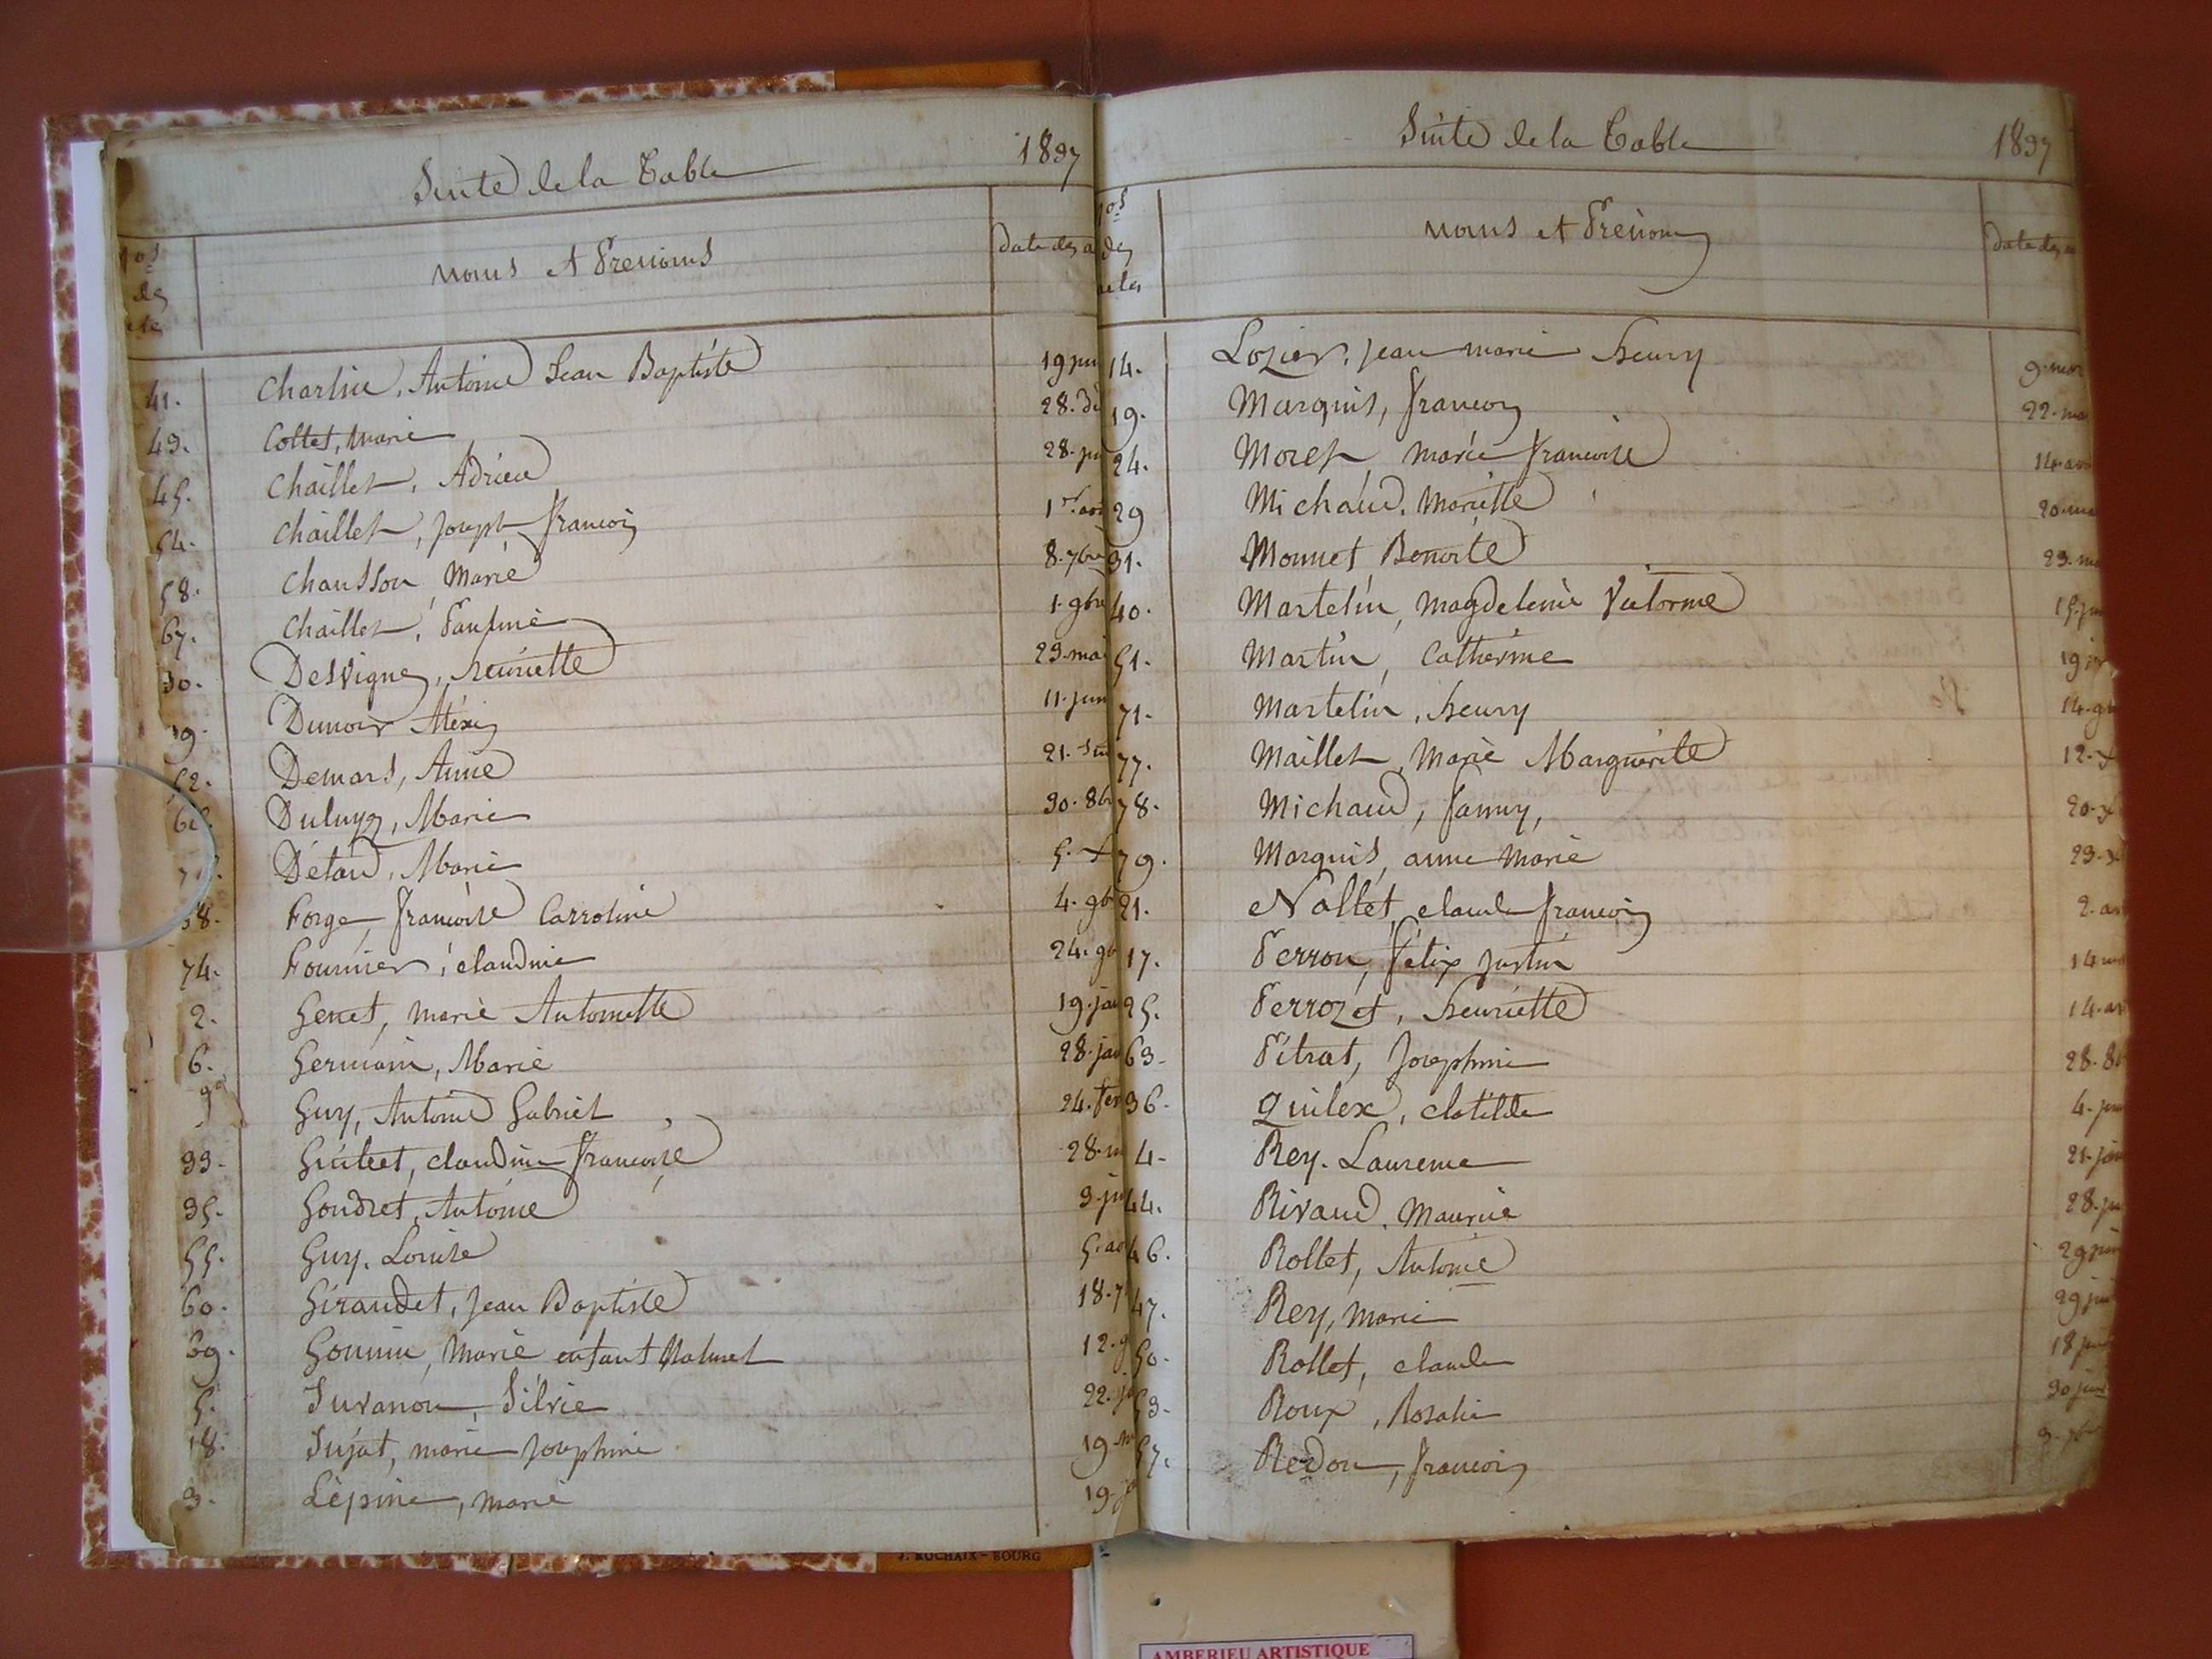 Suite de la Table 1837
Nos
des
noms et Prenoms
Date des a
41. Charlin, Antoine Jean Baptiste 19 jui
43. Collet, Marie 28. 
45. Chaillet, Adrien 28. jui
54. Chaillet, Joseph francois 1er aou
58. Chausson, Marie 8. 7bre
67. Chaillet, 1. 9bre
30. Desvignes, henriette 23 mai
39. Dunoir Alexis 11. juin
52. Demars, Anne 21.
Duluyz, Marie 30. 8b
Détard, Marie 5. X
68. Forge, francoise Carroline 4. 9b
74. Fournier, claudine 24. 9b
2. Genet, marie Antoinette 19. jan
6. Germain, Marie 28. jan
Guy, Antoine Gabriel 24. fev
33. claudine francoise 28. m
35. Goudret, Antoine 3. ju
55. Guy. Louise 5. ao
60. Giraudet, Jean Baptiste 18. 7
69. Gounin, Marie enfant Naturel 12. 9
5. Juvanon, Silvie 22. ja
18. Jujat, marie Josephine 19. m
3. Lépine, marie 19. ja
Suite de la Table 1837
Nos
des
actes
noms et Prenoms
Date des a
14. Lozier, jean marie henry 9. mar
19. Marquis, francois 22. ma
24. Moret, marie francoise 14. avr
29 Michaud. Mariette 20. ma
31. Monnet Benoite 23. ma
40. Martelin, magdeleine Victorine 15. ju
51. Martin, Catherine 19 ju
71. Martelin, henry 14. 9b
77. Maillet, Marie Marguerite 12. X
78. Michaud, fanny, 20. X
79. Marquis, anne Marie 23. X
21. Nallet, claude francois 2. av
17. Perron, félix justin 14 ma
25. Perrozet, henriette 14. av
63. Pitrat, Josephine 28. 8b
36. Quilex, clotilde 4. jui
4. Rey. Laurence 21. jan
44. Rivaud, Maurice 28. ju
46. Rollet, Antoine 29 jui
47. Rey, marie 29 jui
50. Rollet, claude 18 jui
53. Roux, Rosalie 30 juil
57. Redon, francois 3. 7br
J. ROCHAIX - BOURG
AMBERIEU ARTISTIQUE